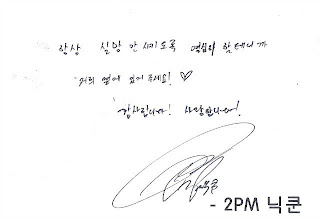 항상 실망 안 시키도록 열심히 할테니까
저희 옆에 있어 주세요! ♡
감사합니다! 사랑합니다!
- 2PM 닉쿤